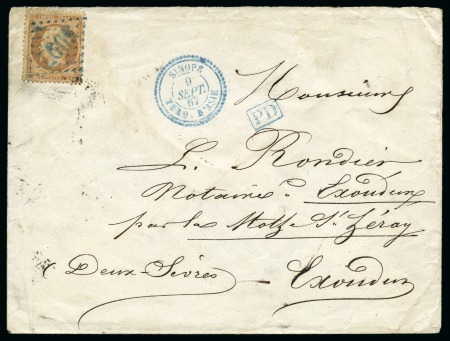 SINOPE
9
SEPT.
67
TURQ. D'ASIE
PD
Monsieur
L. Rondier
Notaire Exoudun
par la Mothe St. Héray
Deux-Sèvres Exoudun